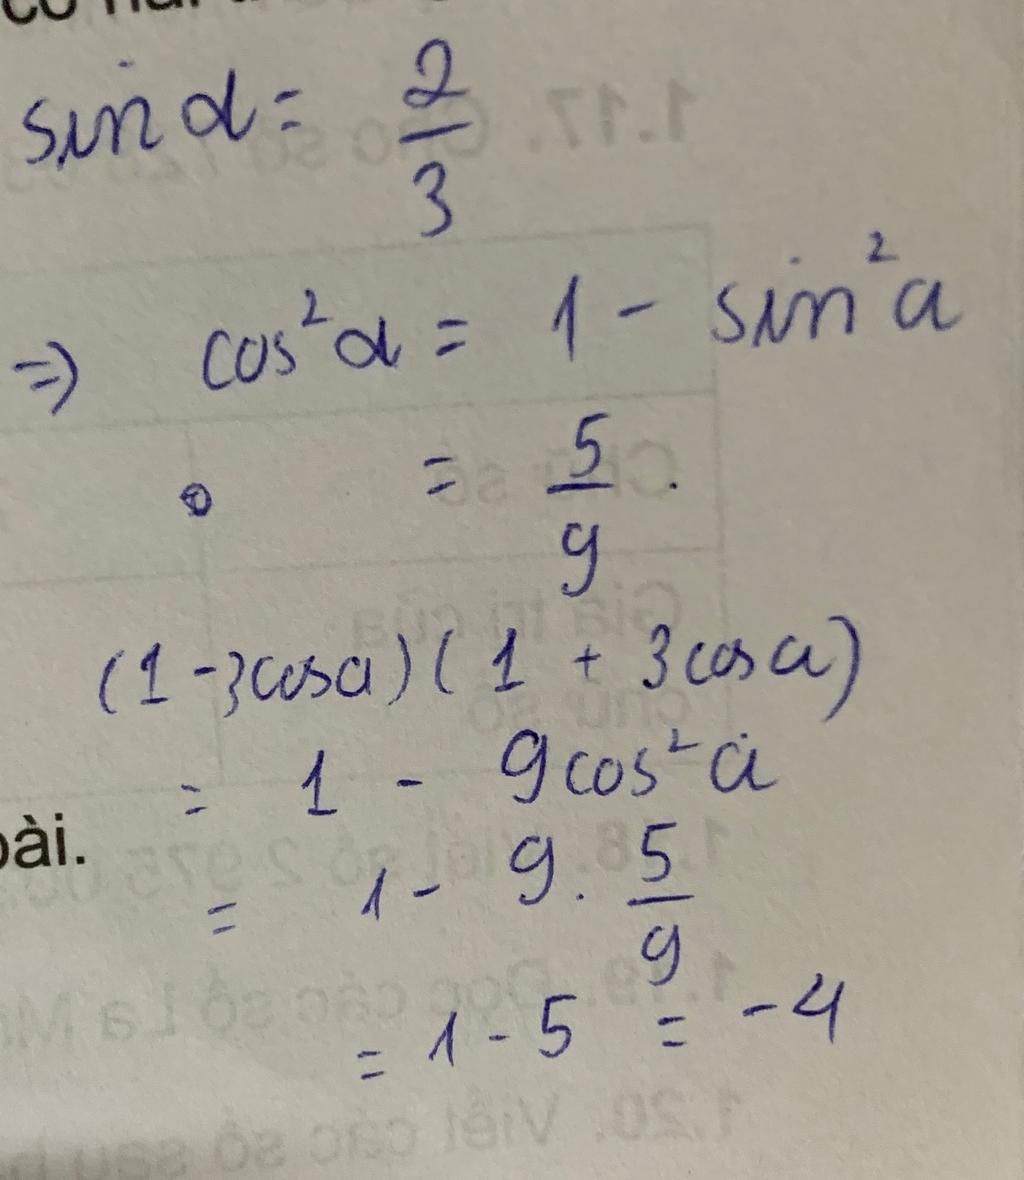 sin α = 2/3
⇒ cos²α = 1 - sin²a
= 5/9 .
(1 - 3cosa)(1 + 3cosa)
= 1 - 9cos²a
bài.
= 1 - 9 . 5/9
= 1 - 5 = -4